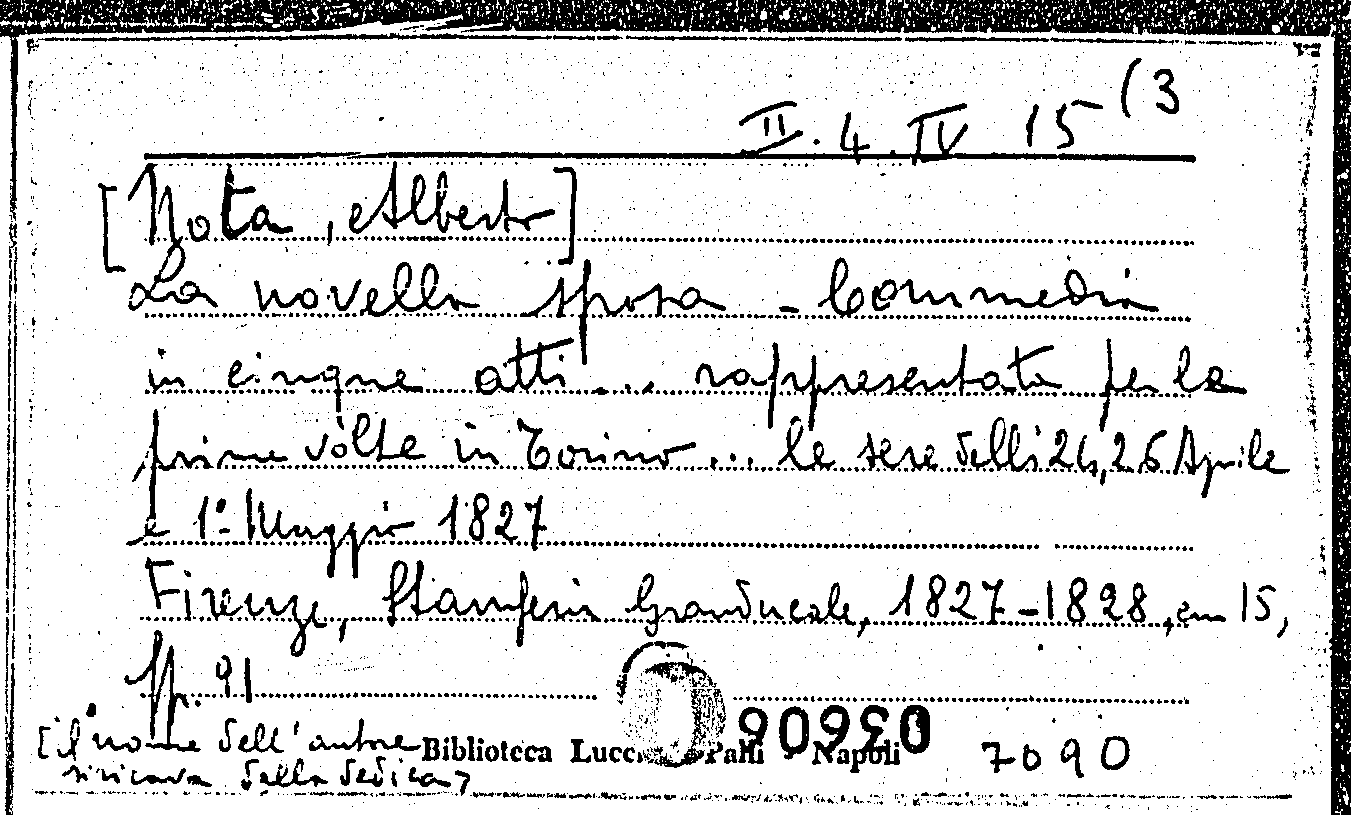 II.4.IV 15 (3
[Nota, Alberto]
La novella sposa - Commedia
in cinque atti... rappresentata per la
prima volta in Torino... le sere delli 24, 26 Aprile
e 1º Maggio 1827
Firenze, Stamperia Granducale, 1827-1828, cm 15,
pp. 91
[il nome dell'autore
si ricava dalla dedica]
Biblioteca Lucchesi Palli Napoli
7090